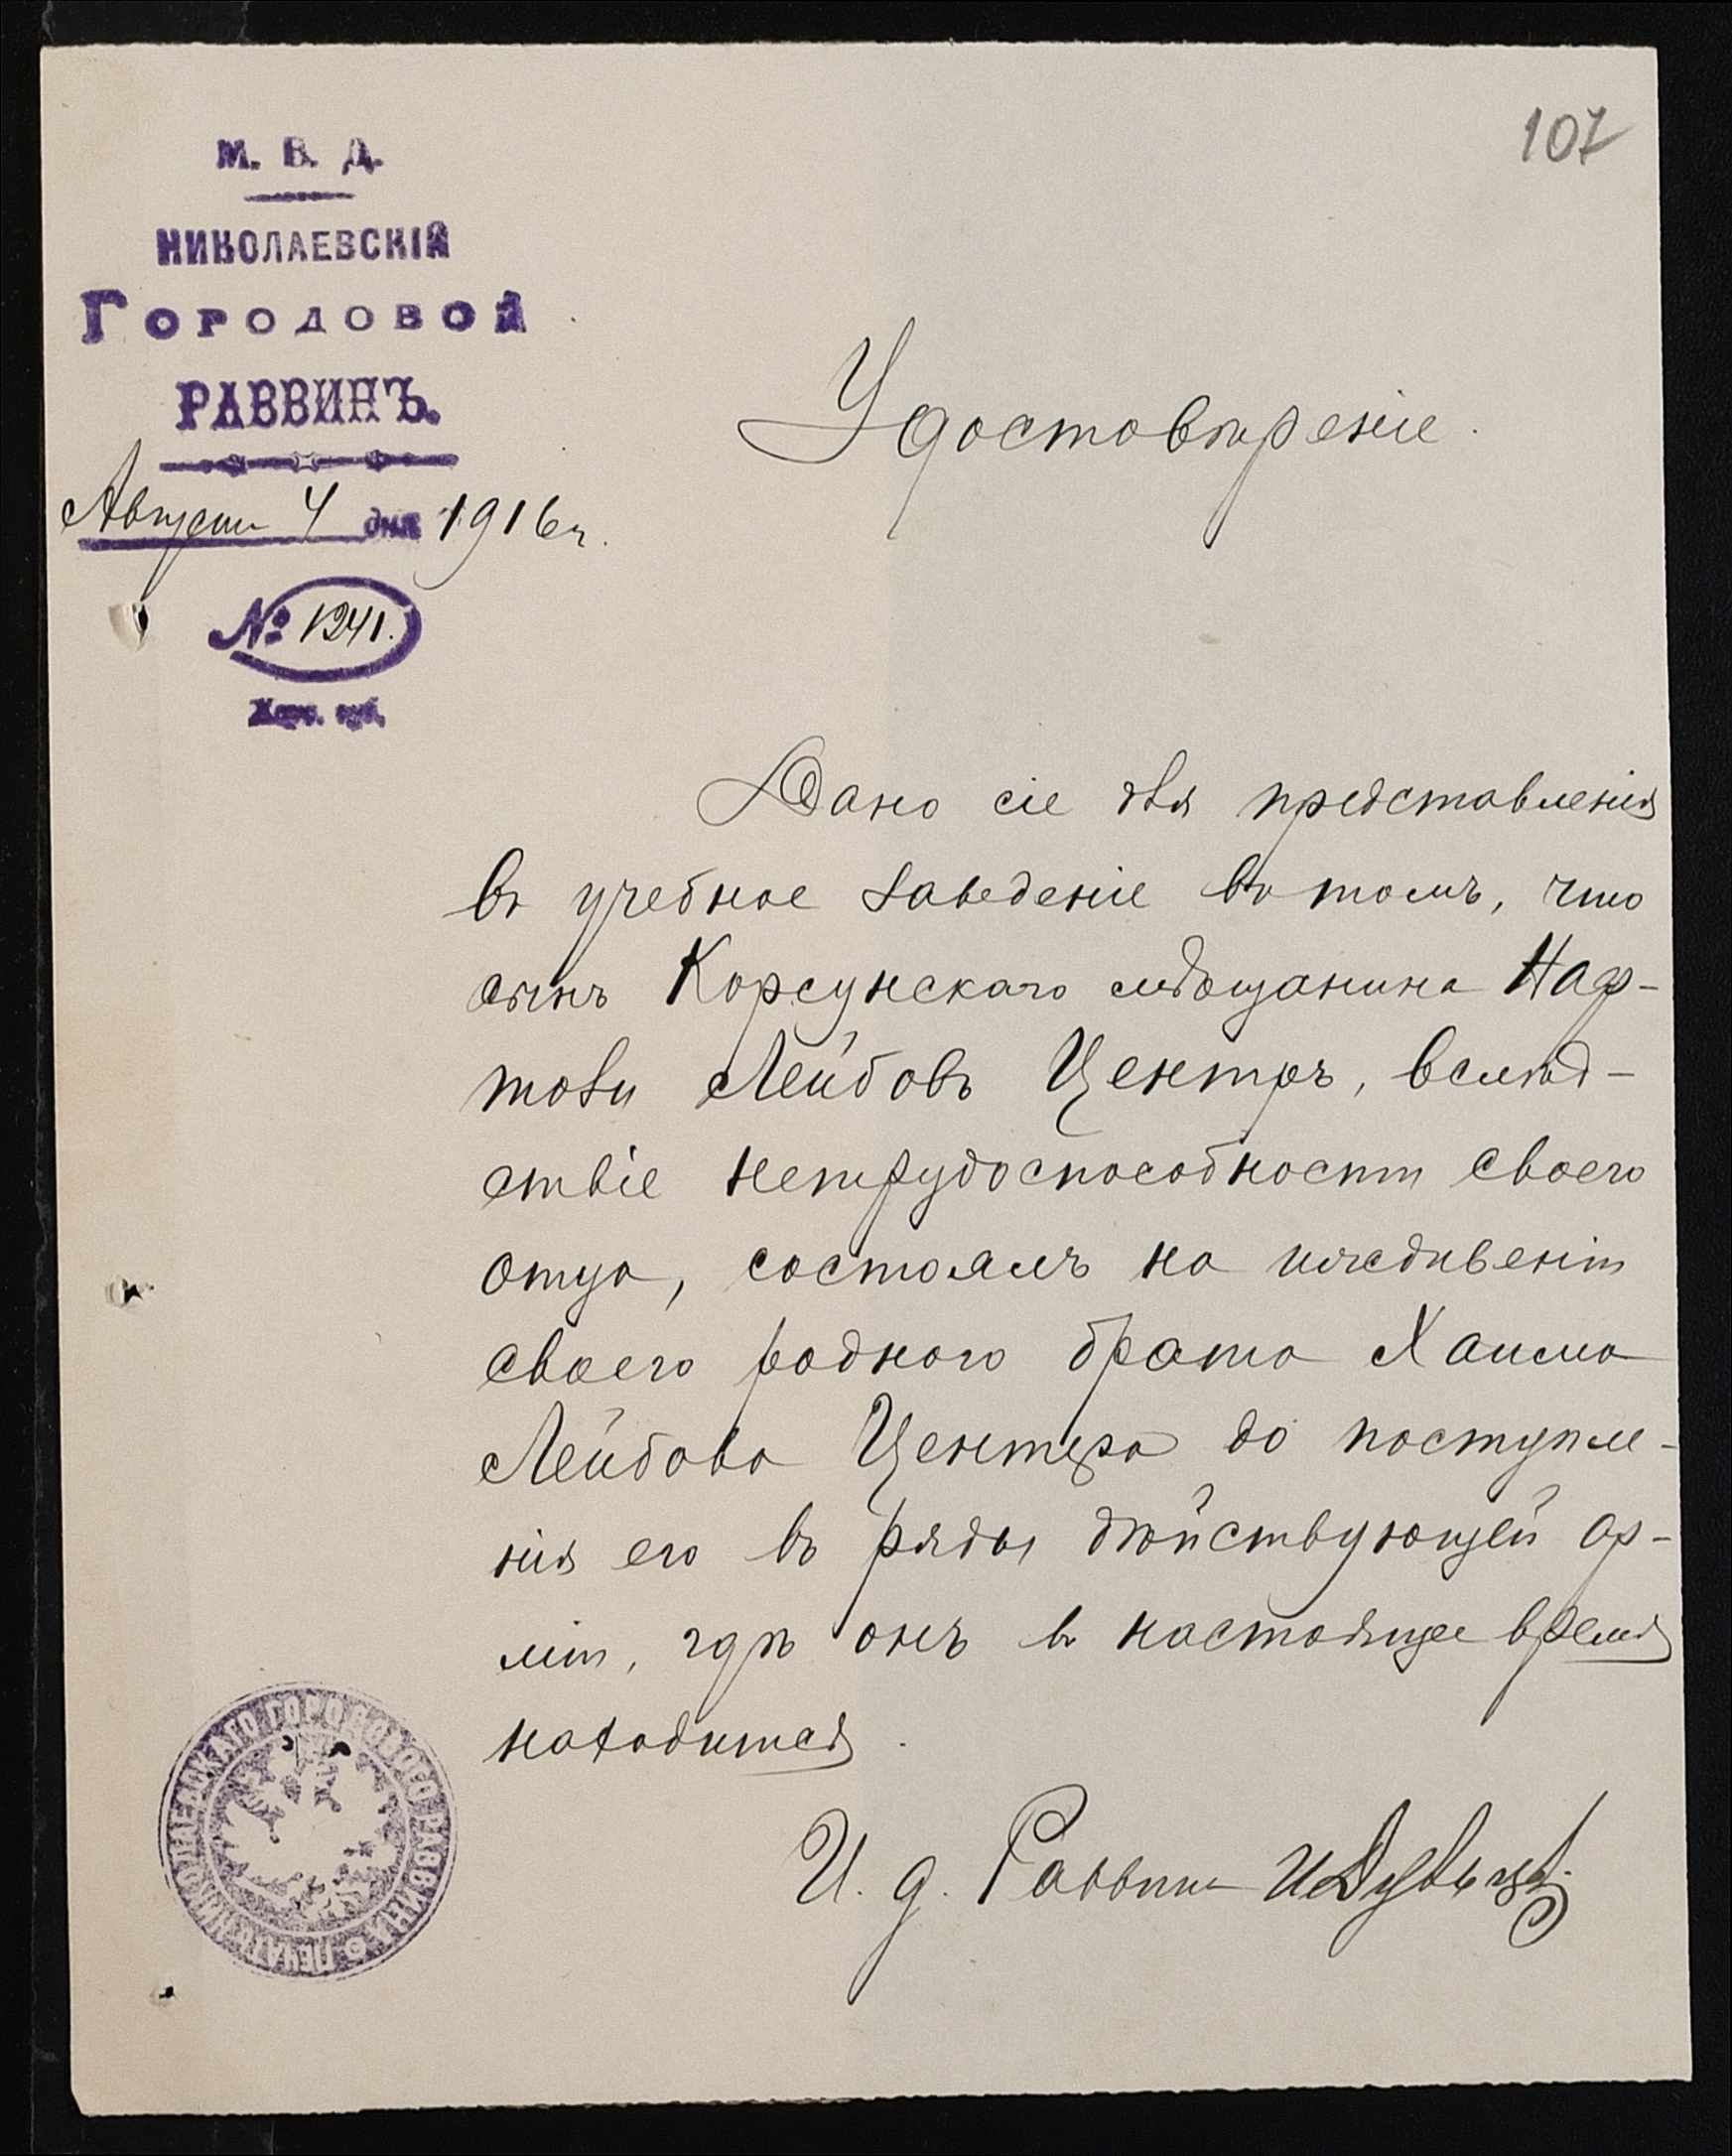 107
М. В. Д.
НИКОЛАЕВСКІЙ
ГОРОДОВОЙ
РАВВИНЪ.
Августа 4 дня 1916 г.
№ 1241.
Херс. губ.
Удостовѣреніе.
Дано сіе для представленія
въ учебное заведеніе въ томъ, что
сынъ Корсунскаго мѣщанина Наф-
толи Лейбовъ Центръ, вслѣд-
ствіе нетрудоспособности своего
отца, состоялъ на иждивеніи
своего родного брата Хаима
Лейбова Центера до поступле-
нія его въ ряды дѣйствующей ар-
міи, гдѣ онъ въ настоящее время
находится.
И. д. Раввина
ПЕЧАТЬ НИКОЛАЕВСКАГО ГОРОДОВОГО РАВВИНА